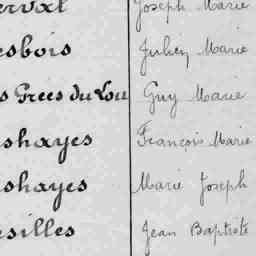 erval Joseph Marie
esbois Julien Marie
s Grees du Lou Guy Marie
shayes François Marie
shayes Marie Joseph
esilles Jean Baptiste